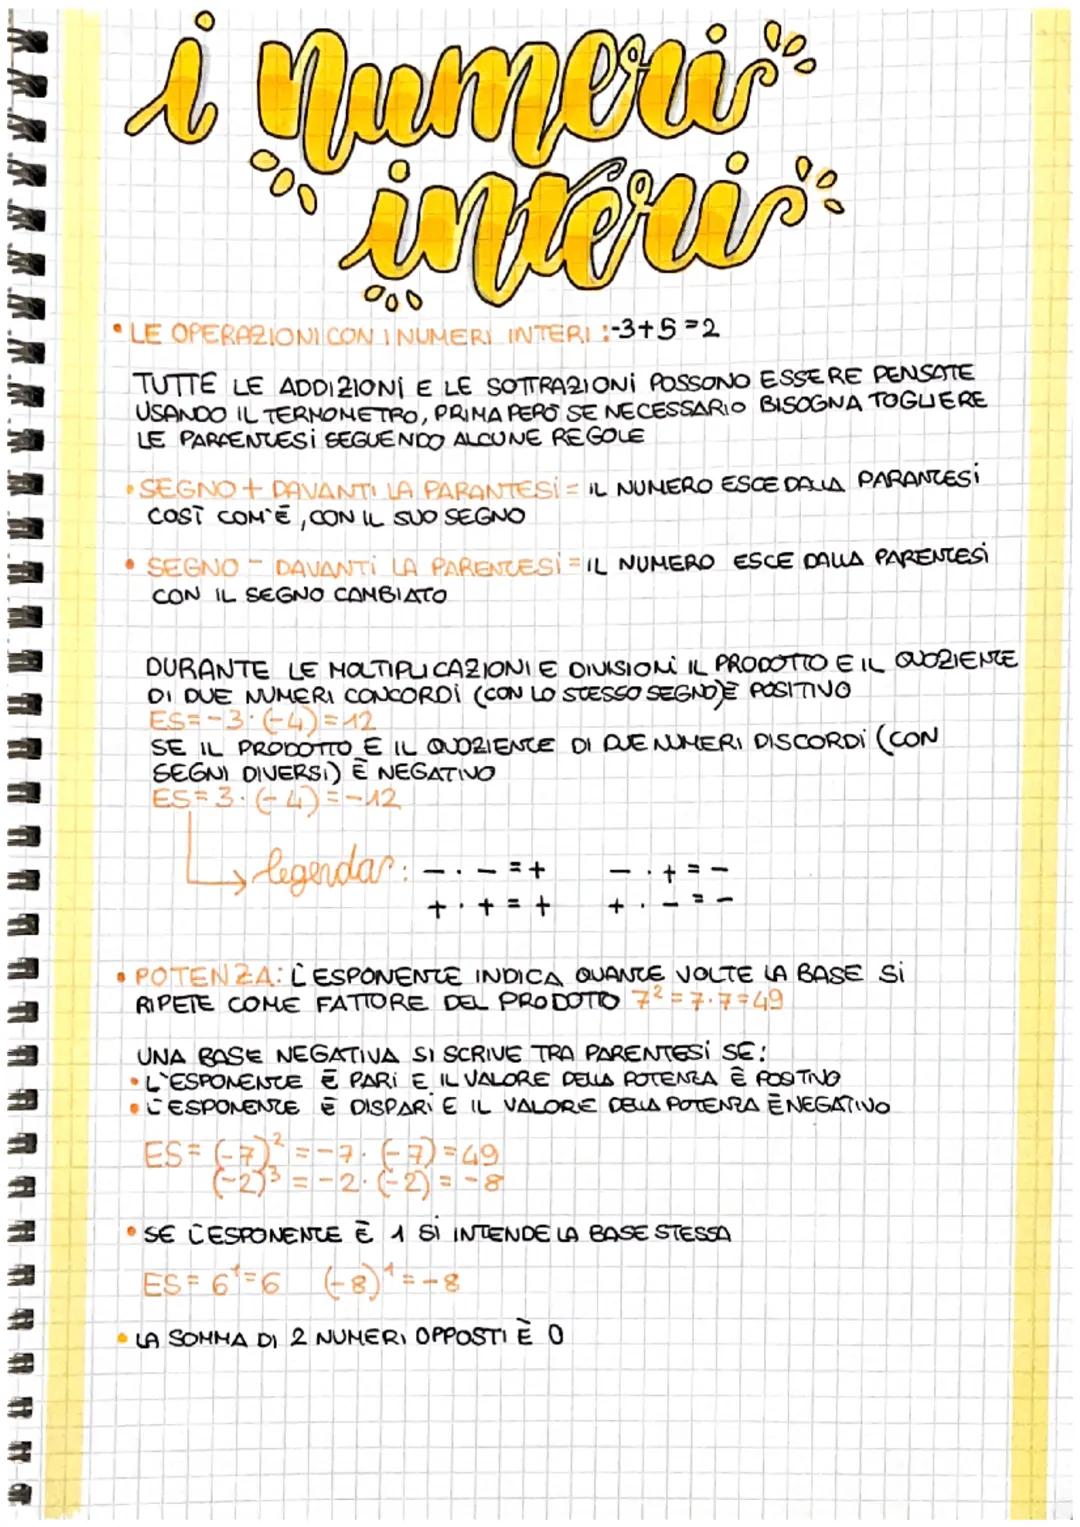 i numeri
interi
• LE OPERAZIONI CON I NUMERI INTERI: -3+5=2
TUTTE LE ADDIZIONI E LE SOTTRAZIONI POSSONO ESSERE PENSATE
USANDO IL TERMOMETRO, PRIMA PERÒ SE NECESSARIO BISOGNA TOGLIERE
LE PARAENTESI SEGUENDO ALCUNE REGOLE
• SEGNO + DAVANTI LA PARANTESI = IL NUMERO ESCE DALLA PARANTESI
COSÌ COM'È, CON IL SUO SEGNO
• SEGNO - DAVANTI LA PARENTESI = IL NUMERO ESCE DALLA PARENTESI
CON IL SEGNO CAMBIATO
DURANTE LE MOLTIPLICAZIONI E DIVISIONI IL PRODOTTO E IL QUOZIENTE
DI DUE NUMERI CONCORDI (CON LO STESSO SEGNO) È POSITIVO
ES= -3·(-4)=12
SE IL PRODOTTO E IL QUOZIENTE DI DUE NUMERI DISCORDI (CON
SEGNI DIVERSI) È NEGATIVO
ES= 3·(-4)=-12
legenda: - · - = + - · + = -
+ · + = + + · - = -
• POTENZA: L'ESPONENTE INDICA QUANTE VOLTE LA BASE SI
RIPETE COME FATTORE DEL PRODOTO 7²=7·7=49
UNA BASE NEGATIVA SI SCRIVE TRA PARENTESI SE:
• L'ESPONENTE È PARI E IL VALORE DELLA POTENZA È POSITIVO
• L'ESPONENTE È DISPARI E IL VALORE DELLA POTENZA È NEGATIVO
ES= (-7)² = -7·(-7)=49
(-2)³ = -2·(-2) = -8
• SE L'ESPONENTE È 1 SI INTENDE LA BASE STESSA
ES= 6¹=6 (-8)¹=-8
• LA SOMMA DI 2 NUMERI OPPOSTI È 0